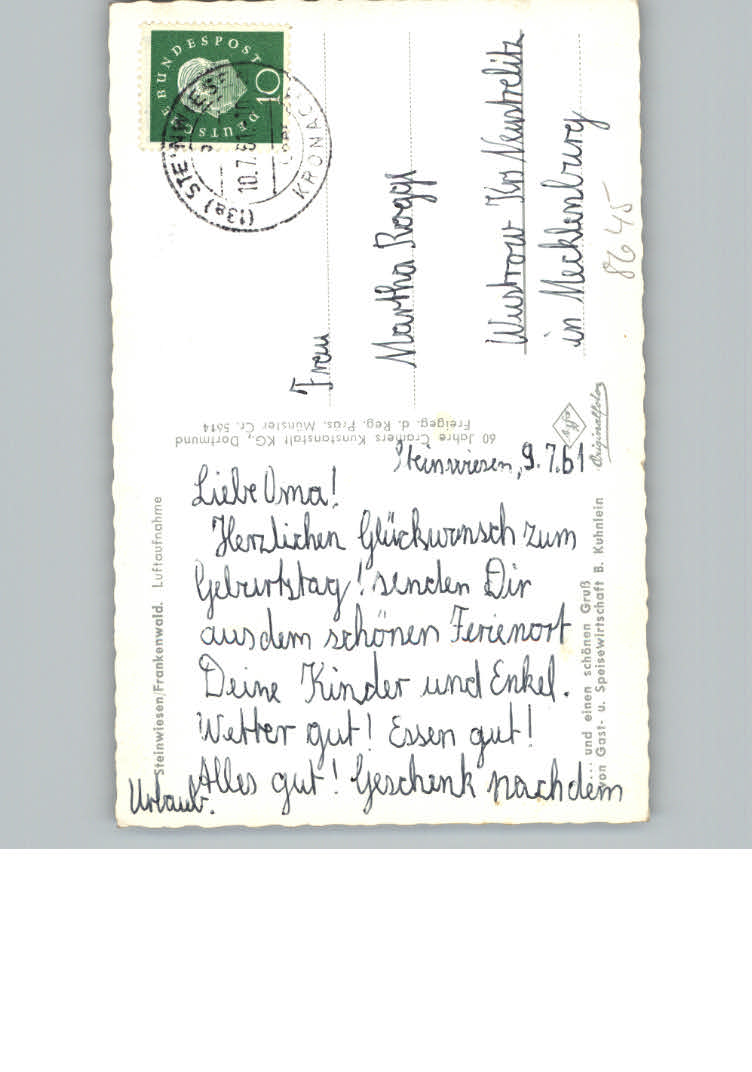 Steinwiesen, 9.7.61
Liebe Oma!
Herzlichen Glückwunsch zum
Geburtstag! senden Dir
aus dem schönen Ferienort
Deine Kinder und Enkel.
Wetter gut! Essen gut!
Alles gut! Geschenk nach dem
Urlaub.
Frau
Martha
Wustrow Krs Neustrelitz
in Mecklenburg
8645
DEUTSCHE BUNDESPOST
10
(13a) STEINWIESEN
10.7.61
KRONACH
Steinwiesen/Frankenwald. Luftaufnahme
60 Jahre Cramers Kunstanstalt KG., Dortmund
Freigeg. d. Reg. Präs. Münster Cr. 5614
Originalfoto
... und einen schönen Gruß
von Gast- u. Speisewirtschaft B. Kuhnlein